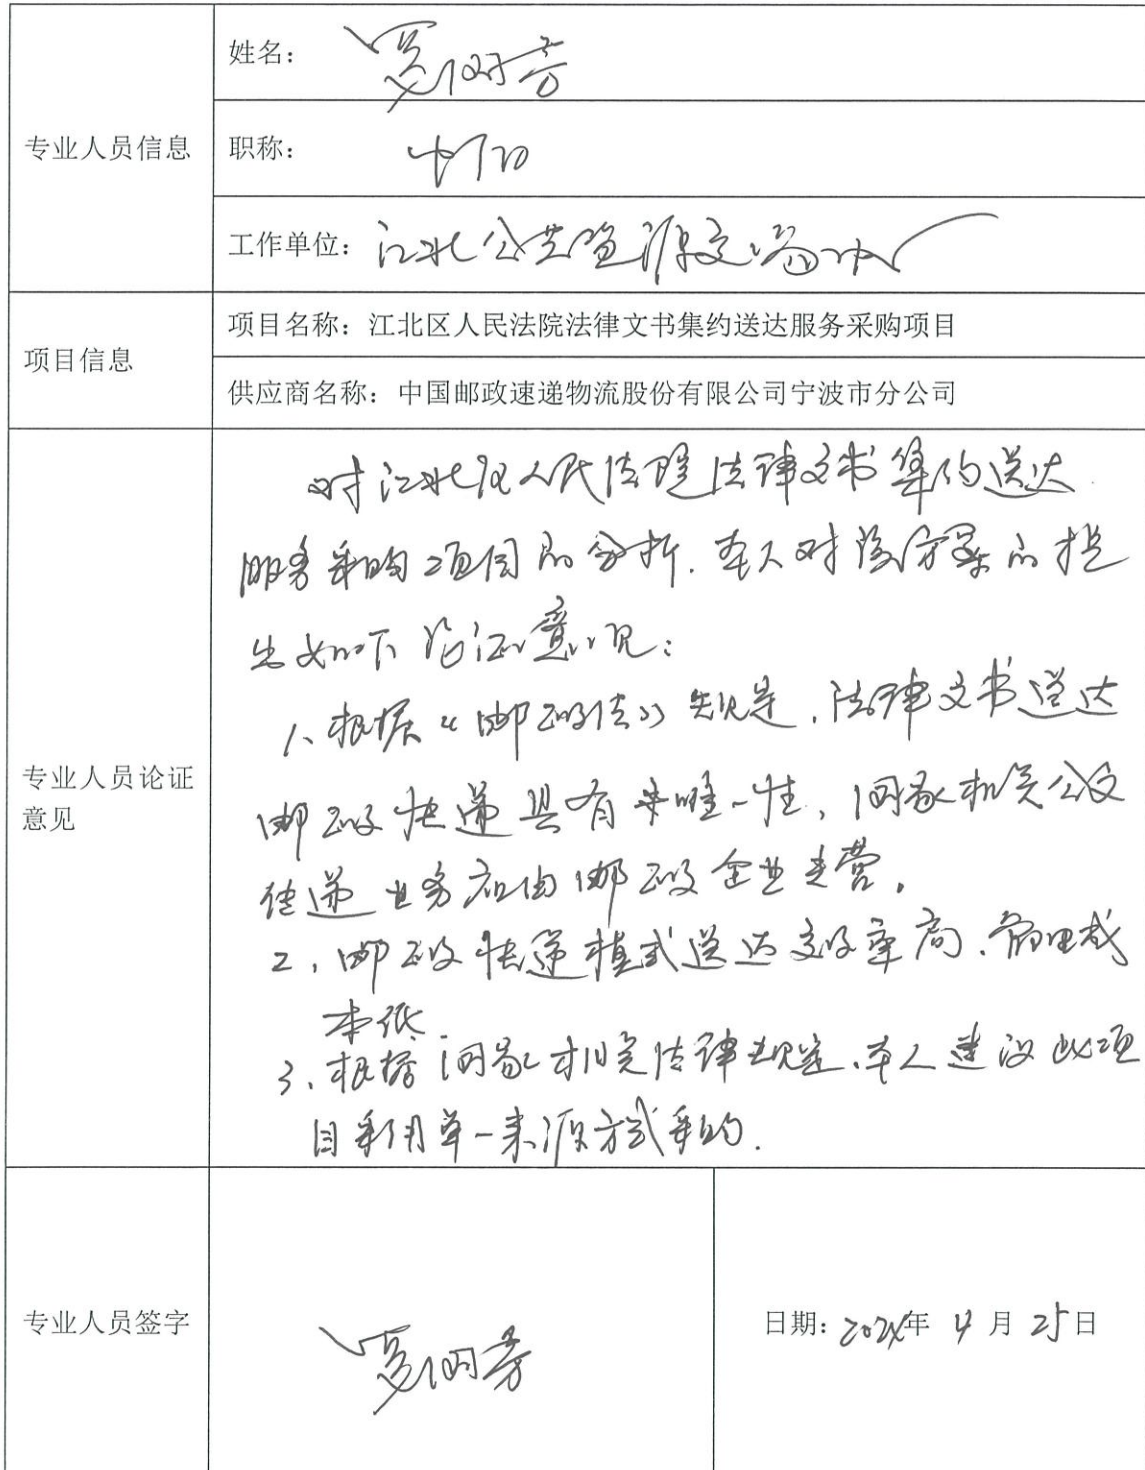 专业人员信息
姓名：
职称：
工作单位：江北公共资源交易中心
项目信息
项目名称：江北区人民法院法律文书集约送达服务采购项目
供应商名称：中国邮政速递物流股份有限公司宁波市分公司
专业人员论证
意见
对江北区人民法院法律文书集约送达
服务采购项目的分析．本人对该方案的提
出如下论证意见：
1、根据《邮政法》规定，法律文书送达
邮政快递具有唯一性，国家机关公文
传递业务应由邮政企业专营。
2、邮政快递模式送达效率高、管理成
本低．
3、根据国家相关法律规定，本人建议此项
目采用单一来源方式采购．
专业人员签字
日期：年 4 月 25日